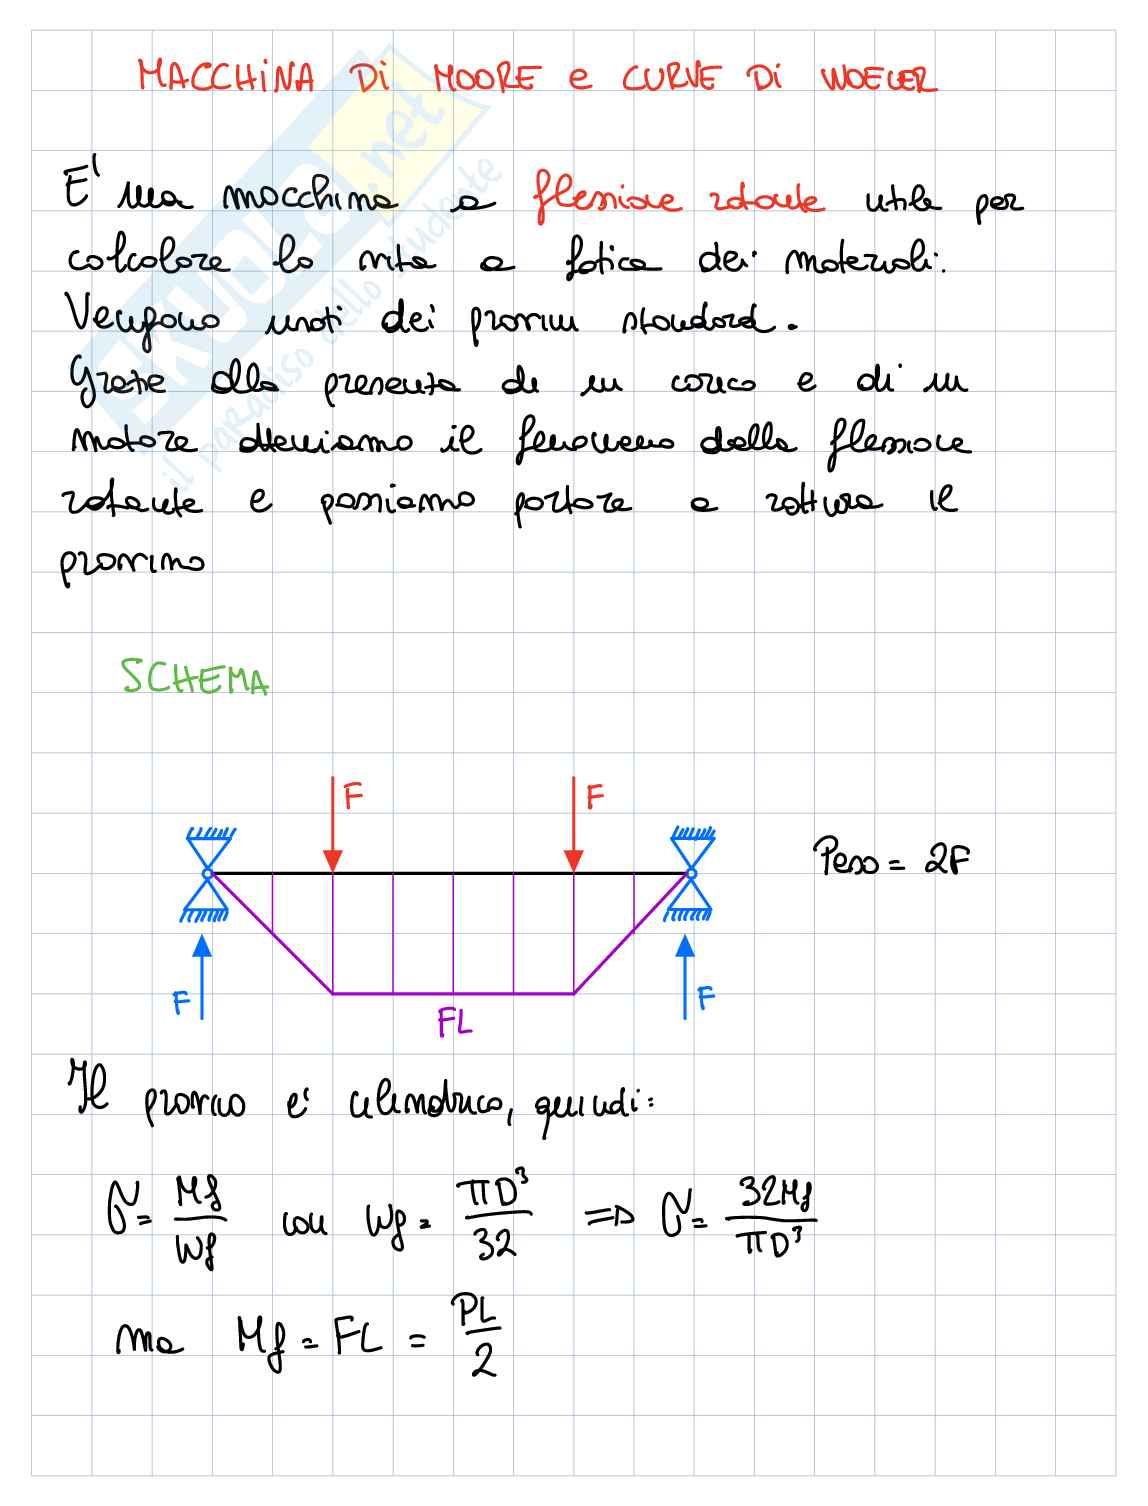 MACCHINA Di MOORE e CURVE Di WOELER
E' una macchina a flessione rotante utile per
calcolare la vita a fatica dei materiali.
Vengono usati dei provini standard.
Grazie alla presenza di un carico e di un
motore otteniamo il fenomeno della flessione
rotante e possiamo portare a rottura il
provino
SCHEMA
F F
Peso = 2F
F F
FL
Il provino e' cilindrico, quindi:
σ = Mf/Wf con Wf = πD³/32 => σ = 32Mf/πD³
ma Mf = FL = PL/2
SKUOLA.net
il paradiso dello studente